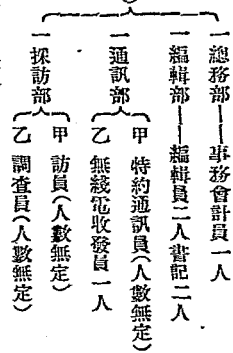 一總務部——事務會計員一人
一編輯部——編輯員二人書記二人
一通訊部
甲 特約通訊員(人數無定)
乙 無綫電收發員一人
一採訪部
甲 訪員(人數無定)
乙 調查員(人數無定)